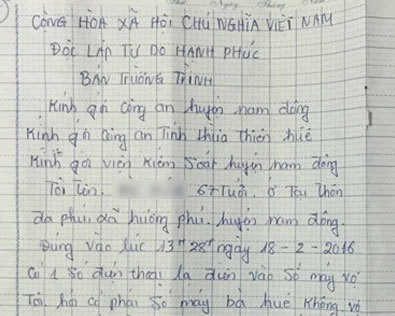 CÔNG HÒA XÃ HÔI CHU NGHĨA VIÊT NAM
ĐÔC LÂP TỰ DO HANH PHUC
BAN TRƯƠNG TRÌNH
Kinh gởi công an huyên nam đông
Kinh gởi công an Tinh thừa thiên huê
Kinh gởi viên kiêm Soat huyên nam đông
Tôi tên. 67 Tuổi. ở Tai thôn
đa phu, xã hương phu. huyên nam đông.
Đung vào luc 13H 28' ngày 18-2-2016
Co 1 Số điên thoai la điên vao Sô may vơ
Tôi. hoi co phai Sô may bà huê không. vơ